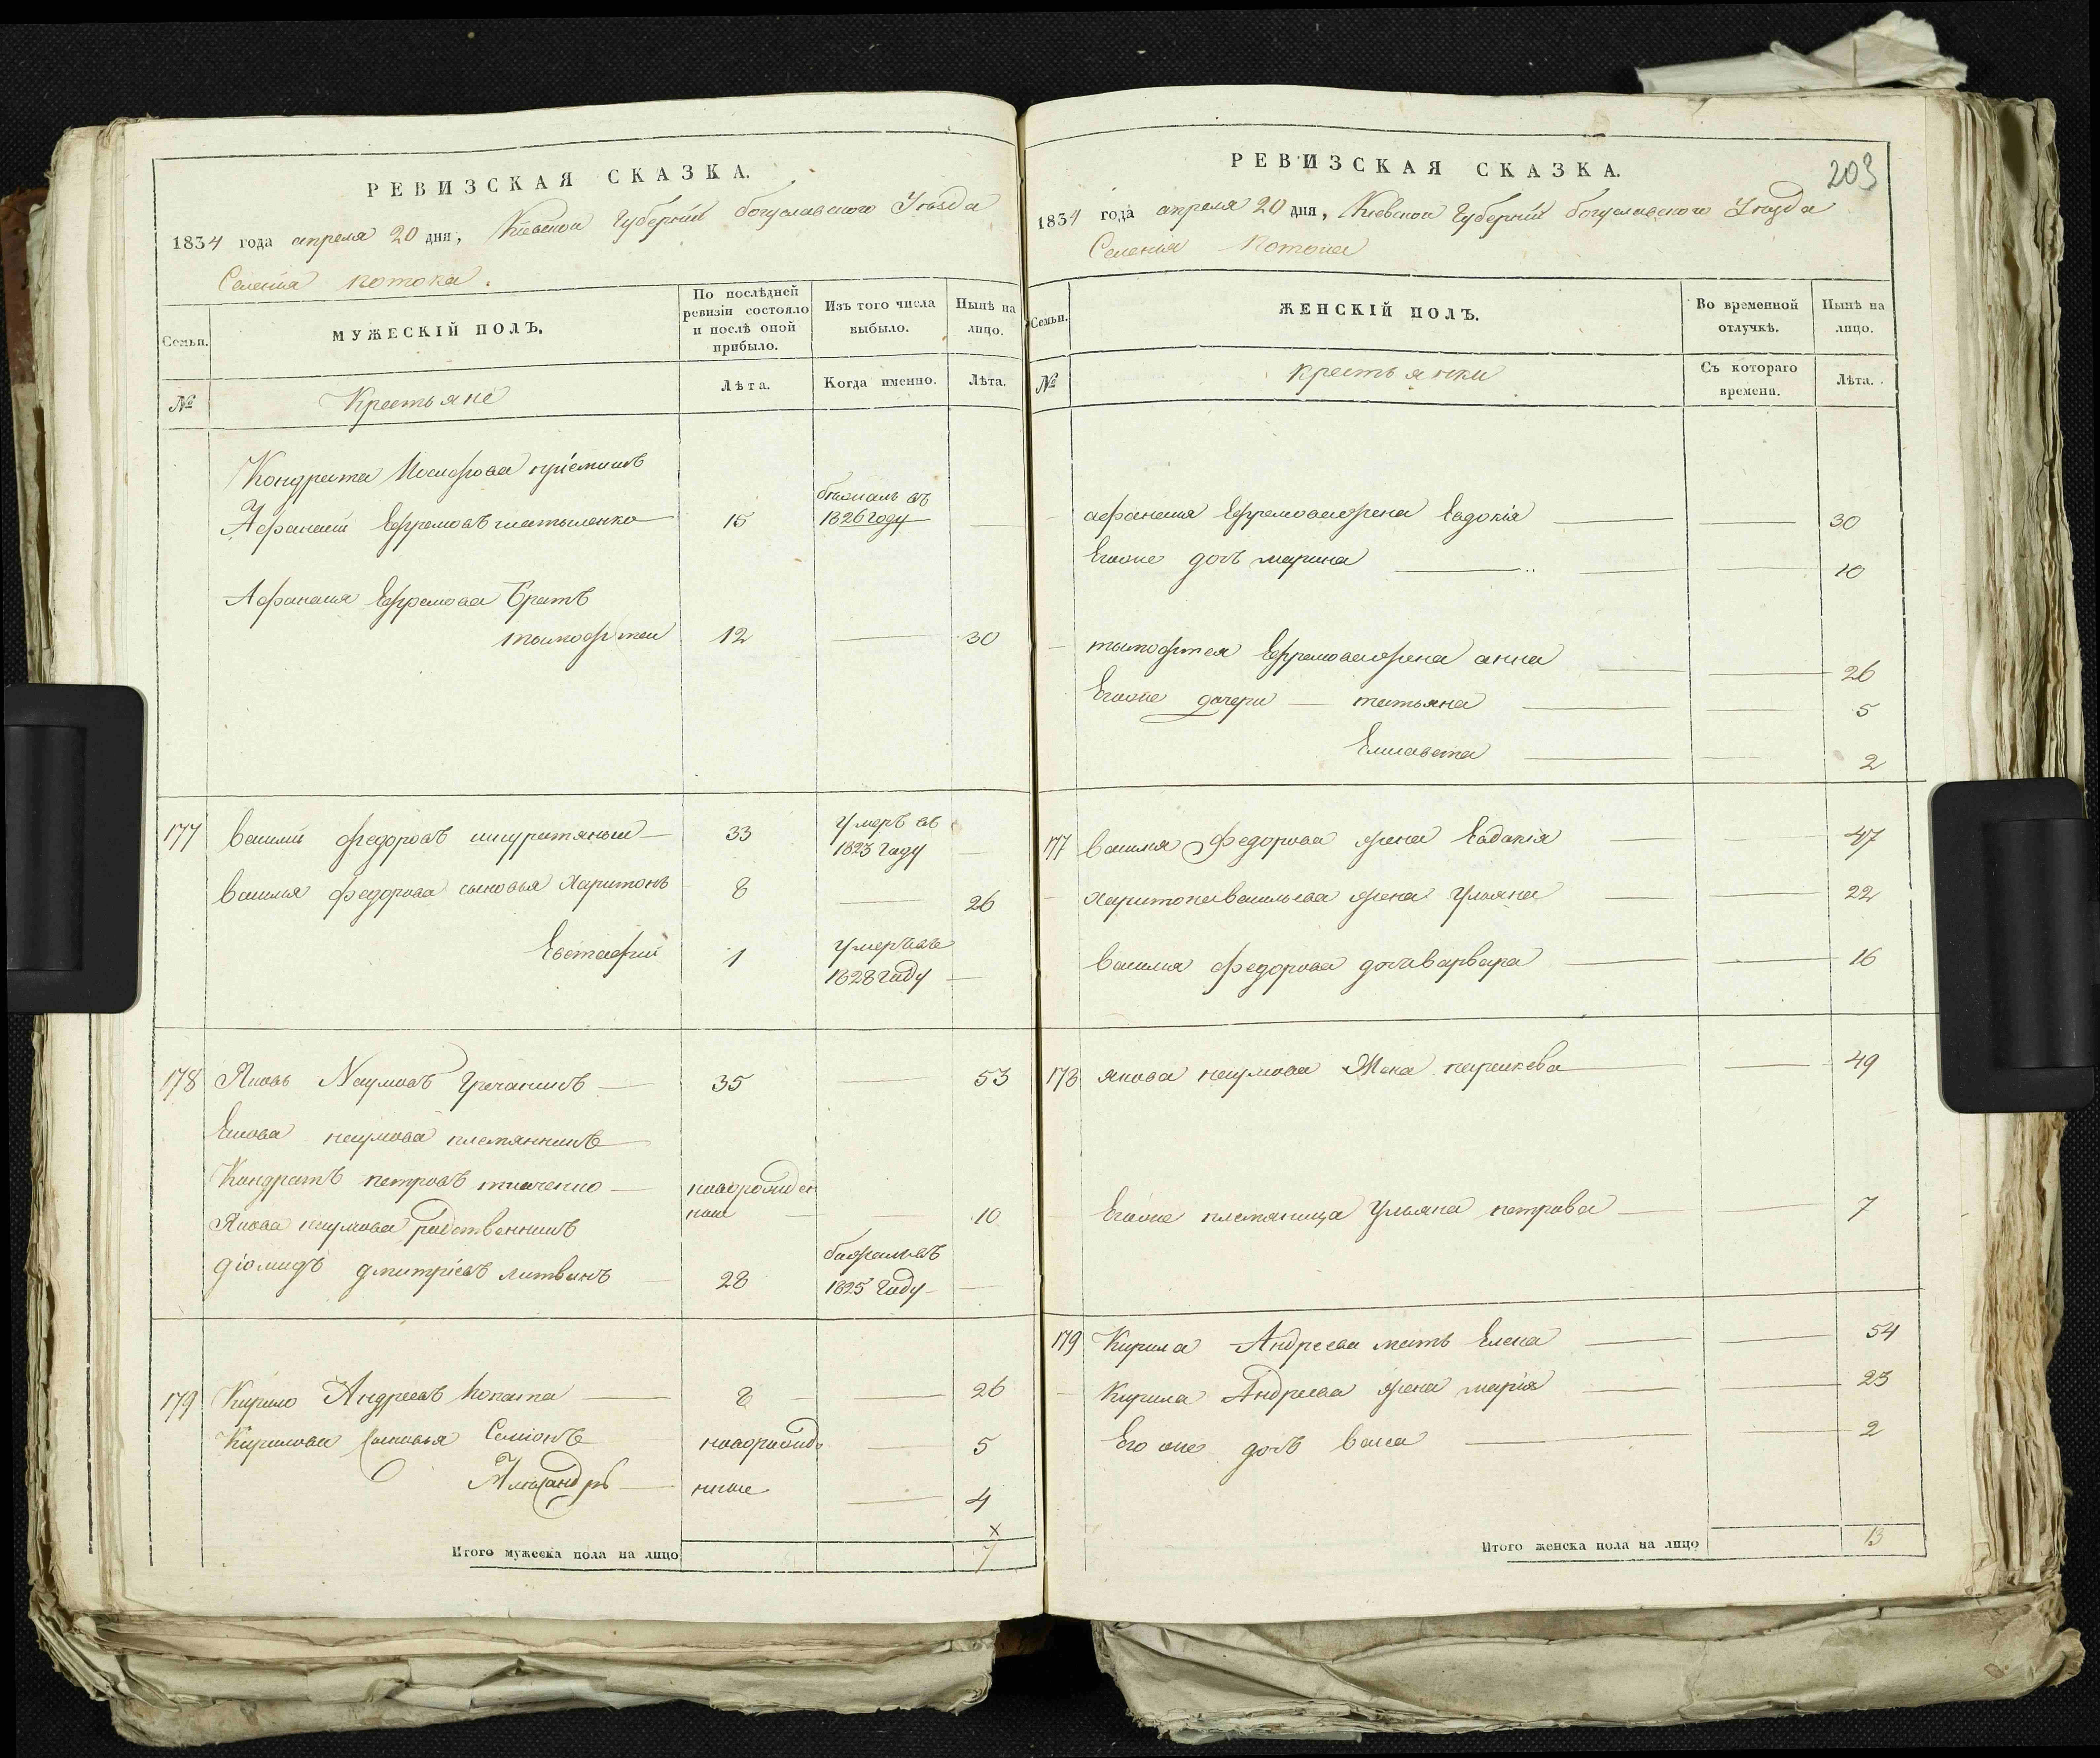 РЕВИЗСКАЯ СКАЗКА.
1834 года апреля 20 дня, Киевской Губернїи богуславского Уѣзда
Селенїя потока.
Семьи.
МУЖЕСКІЙ ПОЛЪ.
По послѣдней ревизіи состояло и послѣ оной прибыло.
Изъ того числа выбыло.
Нынѣ на лицо.
№
Крестьяне
Лѣта.
Когда именно.
Лѣта.
Кондрата Иосифова прїемишъ
Афанасій Ефремовъ 15 1826 году —
Афанасия Ефремова Братъ
тымофтей 12 — 30
177 василий федоровъ 33 умеръ въ 1823 году —
василия федорова сыновья Харитонъ 8 — 26
Евстафий 1 умеръ въ 1828 году —
178 Яковъ Наумовъ Гречанинъ — 35 — 53
Якова наумова племянникъ —
Кондратъ петровъ ткаченко — новорожденной — 10
Якова наумова родственникъ
діомидъ дмитріевъ литвинъ 28 бѣжалъ въ 1825 году —
179 Кирило Андреевъ лопата — 8 — 26
Кирилова сыновья Семіонъ новорожде 5
Александръ — ные — 4
Итого мужеска пола на лицо
х
7
РЕВИЗСКАЯ СКАЗКА.
203
1834 года апреля 20 дня, Киевской Губерніи богуславского Уѣзда
Селенія Потока
Семьи.
ЖЕНСКІЙ ПОЛЪ.
Во временной отлучкѣ.
Нынѣ на лицо.
№
крестьянки
Съ котораго времени.
Лѣта.
афанасия Ефремова жена Евдокія — 30
Егоже дочь марина — 10
тымофтея Ефремова жена анна — 26
Егоже дочери — татьяна — 5
Елисавета — 2
177 василия Федорова жена Евдокія — 47
харитона васильева жена Ульяна — 22
василия федорова дочь варвара — 16
178 якова наумова Жена параскева — 49
Егоже племяница Ульяна петрова — 7
179 Кирила Андреева мать Елена — 54
Кирила Андреева жена марія — 23
Его же дочь васса — 2
Итого женска пола на лицо 13